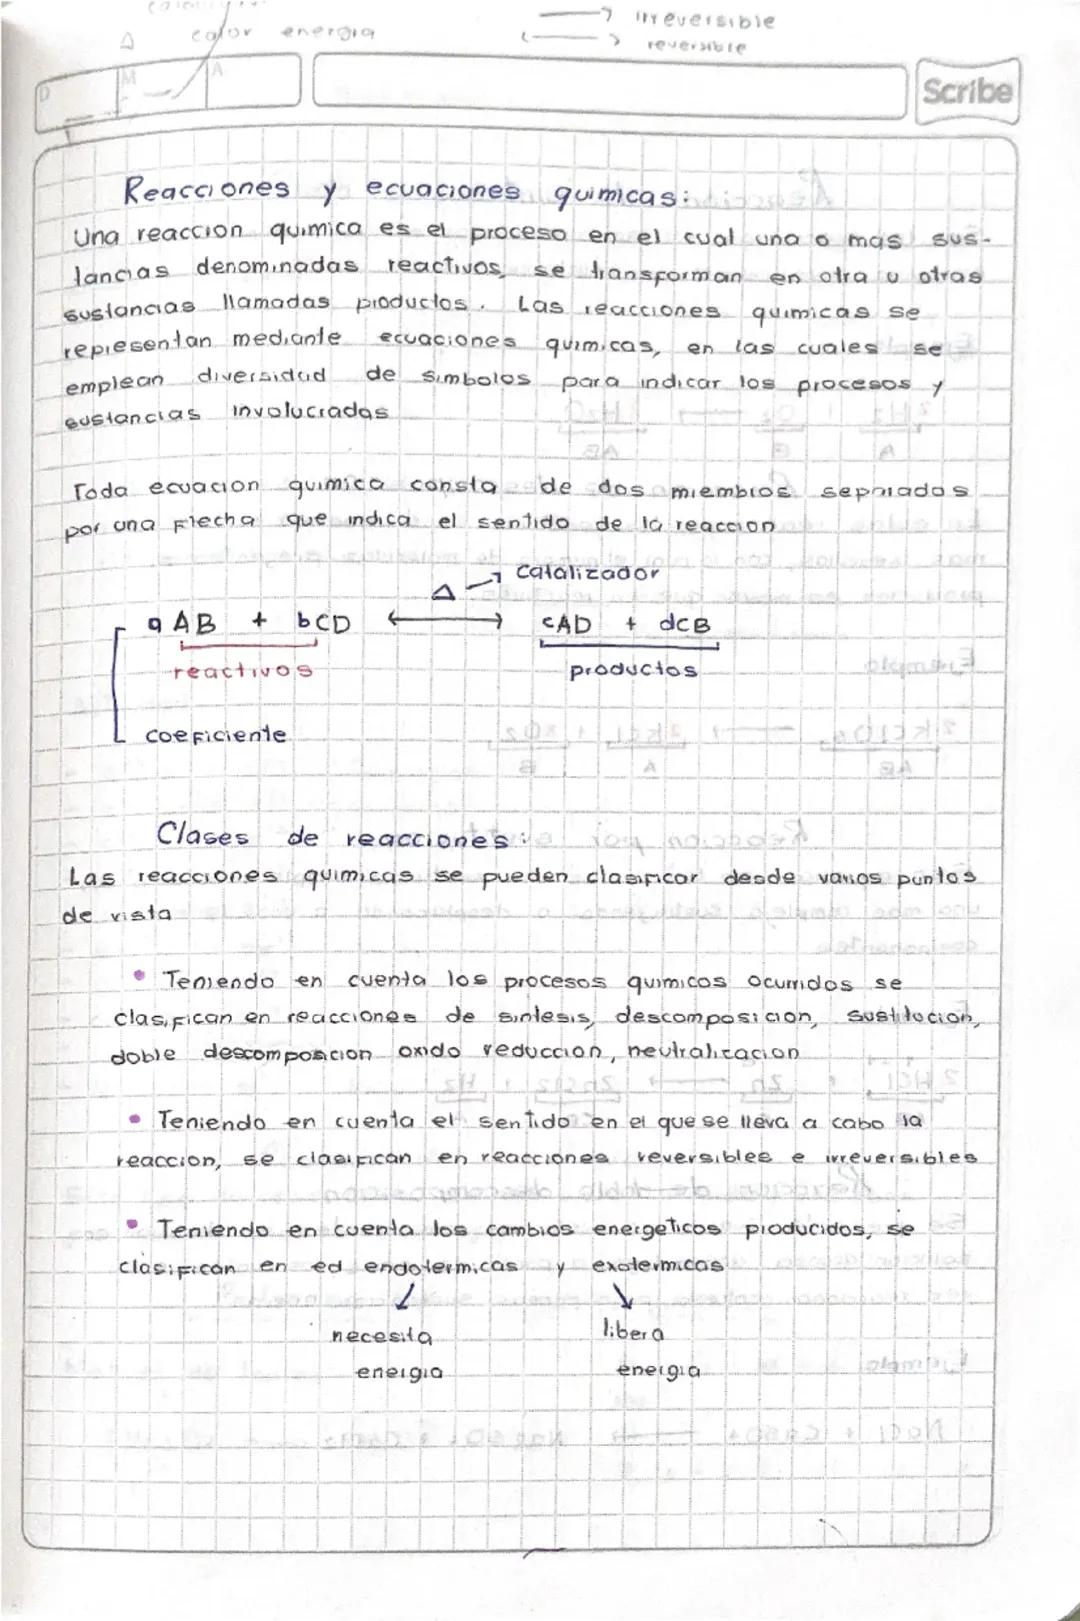 Δ calor energia
→ irreversible
↔ reversible
D M A
Scribe
Reacciones y ecuaciones quimicas:
Una reaccion quimica es el proceso en el cual una o mas sus-
tancias denominadas reactivos, se transforman en otra u otras
sustancias llamadas productos. Las reacciones quimicas se
representan mediante ecuaciones quimicas, en las cuales se
emplean diversidad de simbolos para indicar los procesos y
sustancias involucradas
Toda ecuacion quimica consta de dos miembros separados
por una flecha que indica el sentido de la reaccion
Δ → catalizador
a AB + bCD ↔ cAD + dCB
reactivos productos
coeficiente
Clases de reacciones:
Las reacciones quimicas se pueden clasificar desde varios puntos
de vista
• Teniendo en cuenta los procesos quimicos ocurridos se
clasifican en reacciones de sintesis, descomposicion, sustitucion,
doble descomposicion oxido reduccion, neutralizacion
• Teniendo en cuenta el sentido en el que se lleva a cabo la
reaccion, se clasifican en reacciones reversibles e irreversibles
• Teniendo en cuenta los cambios energeticos producidos, se
clasifican en ed endotermicas y exotermicas
necesita libera
energia energia